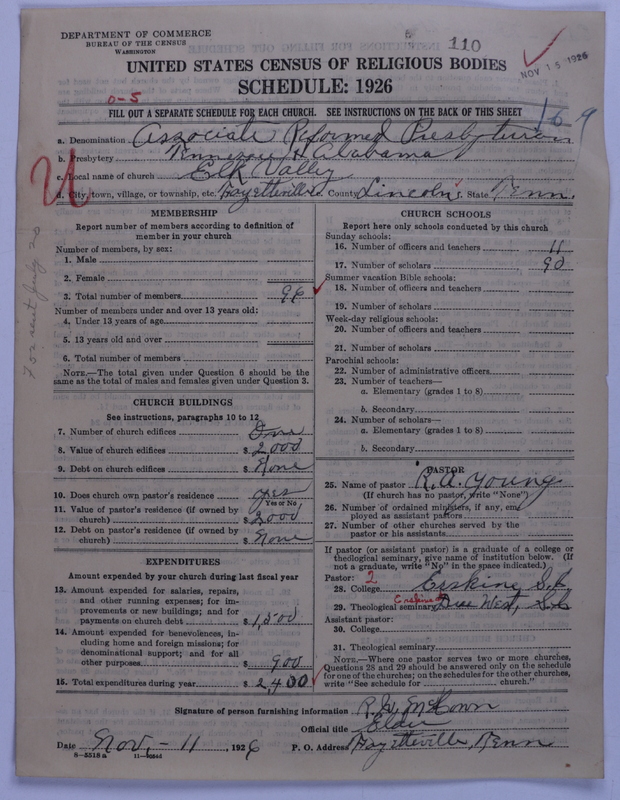 DEPARTMENT OF COMMERCE
BUREAU OF THE CENSUS
WASHINGTON
110
NOV 15 1926
UNITED STATES CENSUS OF RELIGIOUS BODIES
SCHEDULE: 1926
0-5
FILL OUT A SEPARATE SCHEDULE FOR EACH CHURCH. SEE INSTRUCTIONS ON THE BACK OF THIS SHEET
16 9
a. Denomination Associate Reformed Presbyterian
b. Presbytery Tennessee & Alabama
c. Local name of church Elk Valley
d. City, town, village, or township, etc. Fayetteville County Lincoln State Tenn.
U
MEMBERSHIP
Report number of members according to definition of member in your church
Number of members, by sex:
1. Male
2. Female
3. Total number of members 96
Number of members under and over 13 years old:
4. Under 13 years of age
5. 13 years old and over
6. Total number of members
NOTE.—The total given under Question 6 should be the
same as the total of males and females given under Question 3.
CHURCH BUILDINGS
See instructions, paragraphs 10 to 12
7. Number of church edifices One
8. Value of church edifices $ 2000
9. Debt on church edifices $ None
10. Does church own pastor's residence yes
Yes or No
11. Value of pastor's residence (if owned by
church) $ 2000
12. Debt on pastor's residence (if owned by
church) $ None
EXPENDITURES
Amount expended by your church during last fiscal year
13. Amount expended for salaries, repairs,
and other running expenses; for im-
provements or new buildings; and for
payments on church debt $ 1,500
14. Amount expended for benevolences, in-
cluding home and foreign missions; for
denominational support; and for all
other purposes $ 900
15. Total expenditures during year $ 2,400
CHURCH SCHOOLS
Report here only schools conducted by this church
Sunday schools:
16. Number of officers and teachers 11
17. Number of scholars 90
Summer vacation Bible schools:
18. Number of officers and teachers
19. Number of scholars
Week-day religious schools:
20. Number of officers and teachers
21. Number of scholars
Parochial schools:
22. Number of administrative officers
23. Number of teachers—
a. Elementary (grades 1 to 8)
b. Secondary
24. Number of scholars—
a. Elementary (grades 1 to 8)
b. Secondary
PASTOR
25. Name of pastor R. A. Young
(If church has no pastor, write "None")
26. Number of ordained ministers, if any, em-
ployed as assistant pastors
27. Number of other churches served by the
pastor or his assistants
If pastor (or assistant pastor) is a graduate of a college or
theological seminary, give name of institution below. (If
not a graduate, write "No" in the space indicated.)
Pastor: 2
28. College Erskine S.C
29. Theological seminary Erskine Due West, S.C
Assistant pastor:
30. College
31. Theological seminary
NOTE.—Where one pastor serves two or more churches,
Questions 28 and 29 should be answered only on the schedule
for one of the churches; on the schedules for the other churches,
write "See schedule for church."
Signature of person furnishing information
Official title Elder
Date Nov. - 11, 1926 P. O. Address Fayetteville, Tenn
8-5518a